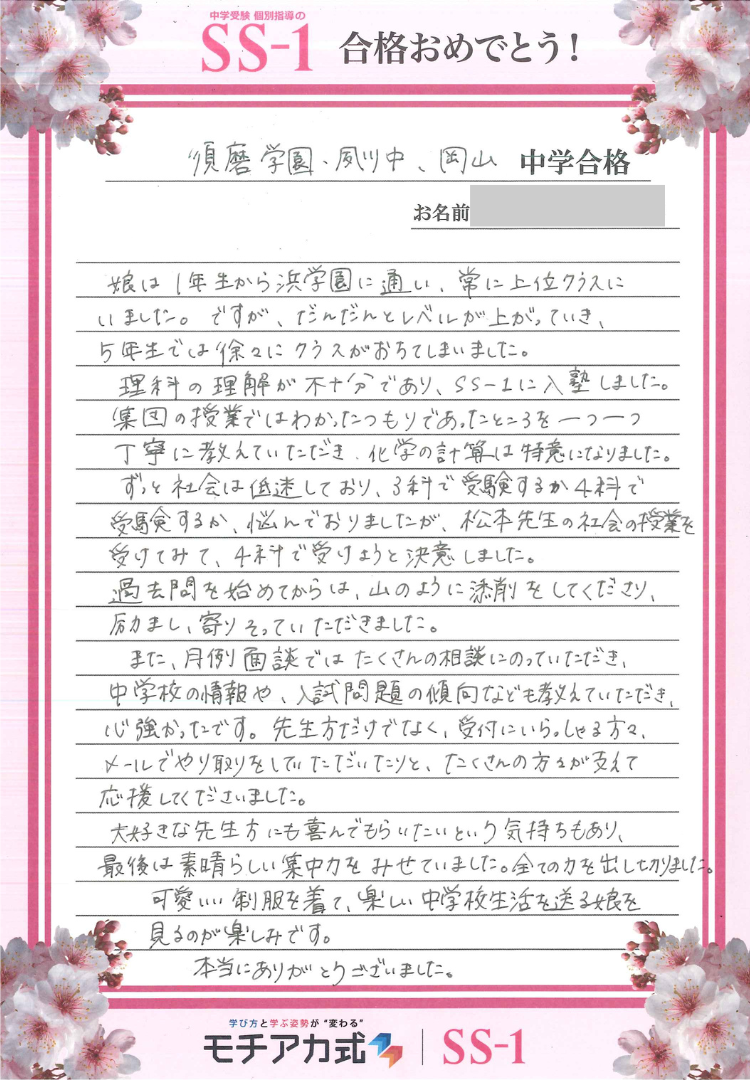 中学受験 個別指導の
SS-1 合格おめでとう!
須磨学園、夙川中、岡山 中学合格
お名前
娘は1年生から浜学園に通い、常に上位クラスに
いました。ですが、だんだんとレベルが上がっていき、
5年生では徐々にクラスがおちてしまいました。
理科の理解が不十分であり、SS-1に入塾しました。
集団の授業ではわかったつもりであったところを一つ一つ
丁寧に教えていただき、化学の計算は特意になりました。
ずっと社会は低迷しており、3科で受験するか4科で
受験するか、悩んでおりましたが、松本先生の社会の授業を
受けてみて、4科で受けようと決意しました。
過去問を始めてからは、山のように添削をしてくださり、
励まし、寄りそっていただきました。
また、月例面談ではたくさんの相談にのっていただき、
中学校の情報や、入試問題の傾向なども教えていただき、
心強かったです。先生方だけでなく、受付にいらっしゃる方々、
メールでやり取りをしていただいたりと、たくさんの方々が支えて
応援してくださいました。
大好きな先生方にも喜んでもらいたいという気持ちもあり、
最後は素晴らしい集中力をみせていました。全ての力を出し切りました。
可愛いい制服を着て、楽しい中学校生活を送る娘を
見るのが楽しみです。
本当にありがとうございました。
学び方と学ぶ姿勢が“変わる”
モチアカ式 SS-1